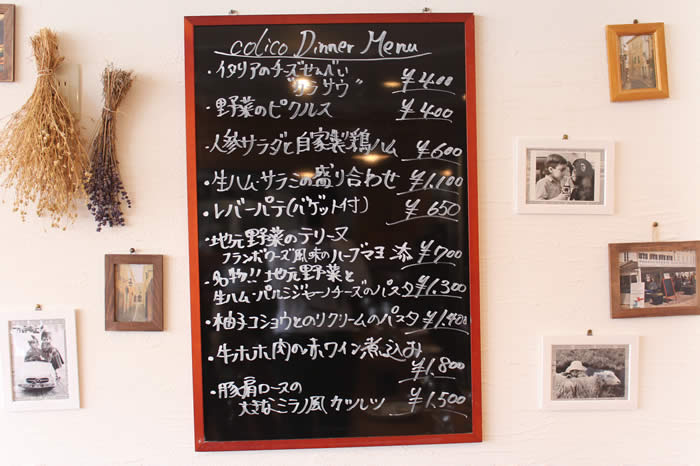 colico Dinner Menu
・イタリアのチーズせんべい
"フラサウ" ¥400
・野菜のピクルス ¥400
・人参サラダと自家製鶏ハム ¥600
・生ハム・サラミの盛り合わせ ¥1,100
・レバーパテ(バゲット付) ¥650
・地元野菜のテリーヌ
フランボワーズ風味のハーブマヨ 添 ¥700
・名物!!地元野菜と
生ハム・パルミジャーノチーズのパスタ ¥1,300
・柚子コショウとのりクリームのパスタ ¥1,400
・牛ホホ肉の赤ワイン煮込み
¥1,800
・豚肩ロースの
大きなミラノ風カツレツ ¥1,500